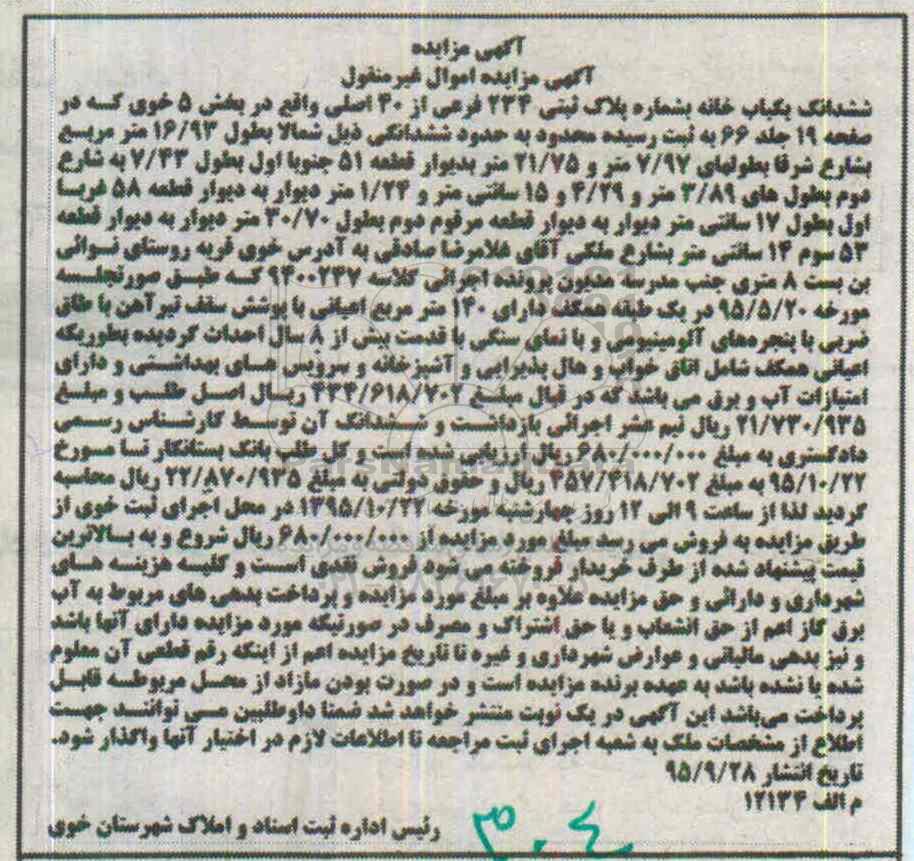 آگهی مزایده
آگهی مزایده اموال غیرمنقول
ششدانگ یکباب خانه بشماره پلاک ثبتی ۲۳۴ فرعی از ۴۰ اصلی واقع در بخش ۵ خوی کـه در
صفحه ۱۹ جلد ۶۶ به ثبت رسیده محدود به حدود ششدانگی ذیل شمالا بطول ۱۶/۹۳ متر مربـع
بشارع شرقا بطولهای ۷/۹۷ متر و ۲۱/۷۵ متر بدیوار قطعه ۵۱ جنوبا اول بطول ۷/۴۳ به شارع
دوم بطول های ۳/۸۹ متر و ۴/۲۹ و ۱۵ سانتی متر و ۱/۲۴ متر دیوار به دیوار قطعه ۵۸ غربـا
اول بطول ۱۷ سانتی متر دیوار به دیوار قطعه مرقوم دوم بطول ۳۰/۷۰ متر دیوار به دیوار قطعه
۵۳ سوم ۱۴ سانتی متر بشارع ملکی آقای غلامرضا صادقی به آدرس خوی قریه روستای نـوائی
بن بست ۸ متری جنب مدرسه مدیون پرونده اجرائی کلاسه ۹۴۰۰۲۴۷ کـه طبـق صورتجلـسه
مورخه ۹۵/۵/۲۰ در یک طبقه همکف دارای ۱۴۰ متر مربع اعیانی با پوشش سقف تیر آهن با طاق
ضربی با پنجره‌های آلومینیومی و با نمای سنگی با قدمت بیش از ۸ سال احداث گردیده بطوریکه
اعیانی همکف شامل اتاق خواب و هال پذیرایی و آشپزخانه و سرویس هـای بهداشـتی و دارای
امتیازات آب و برق می باشد که در قبال مبلـغ ۴۳۴/۶۱۸/۷۰۲ ریـال اصـل طلـب و مبلـغ
۲۱/۷۳۰/۹۳۵ ریال نیم عشر اجرائی بازداشـت و شـشدانک آن توسـط کارشـناس رسـمی
دادگستری به مبلغ ۶۸۰/۰۰۰/۰۰۰ ریال ارزیابی شده است و کل طلب بانک بستانکار تـا مـورخ
۹۵/۱۰/۲۲ به مبلغ ۴۵۷/۴۱۸/۷۰۲ ریال و حقوق دولتی به مبلغ ۲۲/۸۷۰/۹۳۵ ریال محاسبه
گردید لذا از ساعت ۹ الی ۱۲ روز چهارشنبه مورخه ۱۳۹۵/۱۰/۲۲ در محل اجرای ثبت خوی از
طریق مزایده به فروش می رسد مبلغ مورد مزایده از ۶۸۰/۰۰۰/۰۰۰ ریال شروع و به بـالاترین
قیمت پیشنهاد شده از طرف خریدار فروخته می شود فروش نقدی اسـت و کلیـه هزینـه هـای
شهرداری و دارائی و حق مزایده علاوه بر مبلغ مورد مزایده و پرداخت بدهی های مربوط به آب
برق گاز اعم از حق انشعاب و یا حق اشتراک و مصرف در صورتیکه مورد مزایده دارای آنها باشد
و نیز بدهی مالیاتی و عوارض شهرداری و غیره تا تاریخ مزایده اعم از اینکه رقم قطعی آن معلوم
شده یا نشده باشد به عهده برنده مزایده است و در صورت بودن مازاد از محـل مربوطـه قابـل
پرداخت می‌باشد این آگهی در یک نوبت منتشر خواهد شد ضمنا داوطلبین مـی تواننـد جهـت
اطلاع از مشخصات ملک به شعبه اجرای ثبت مراجعه تا اطلاعات لازم در اختیار آنها واگذار شود.
تاریخ انتشار ۹۵/۹/۲۸
م الف ۱۲۱۳۴
رئیس اداره ثبت اسناد و املاک شهرستان خوی
۳۰۴